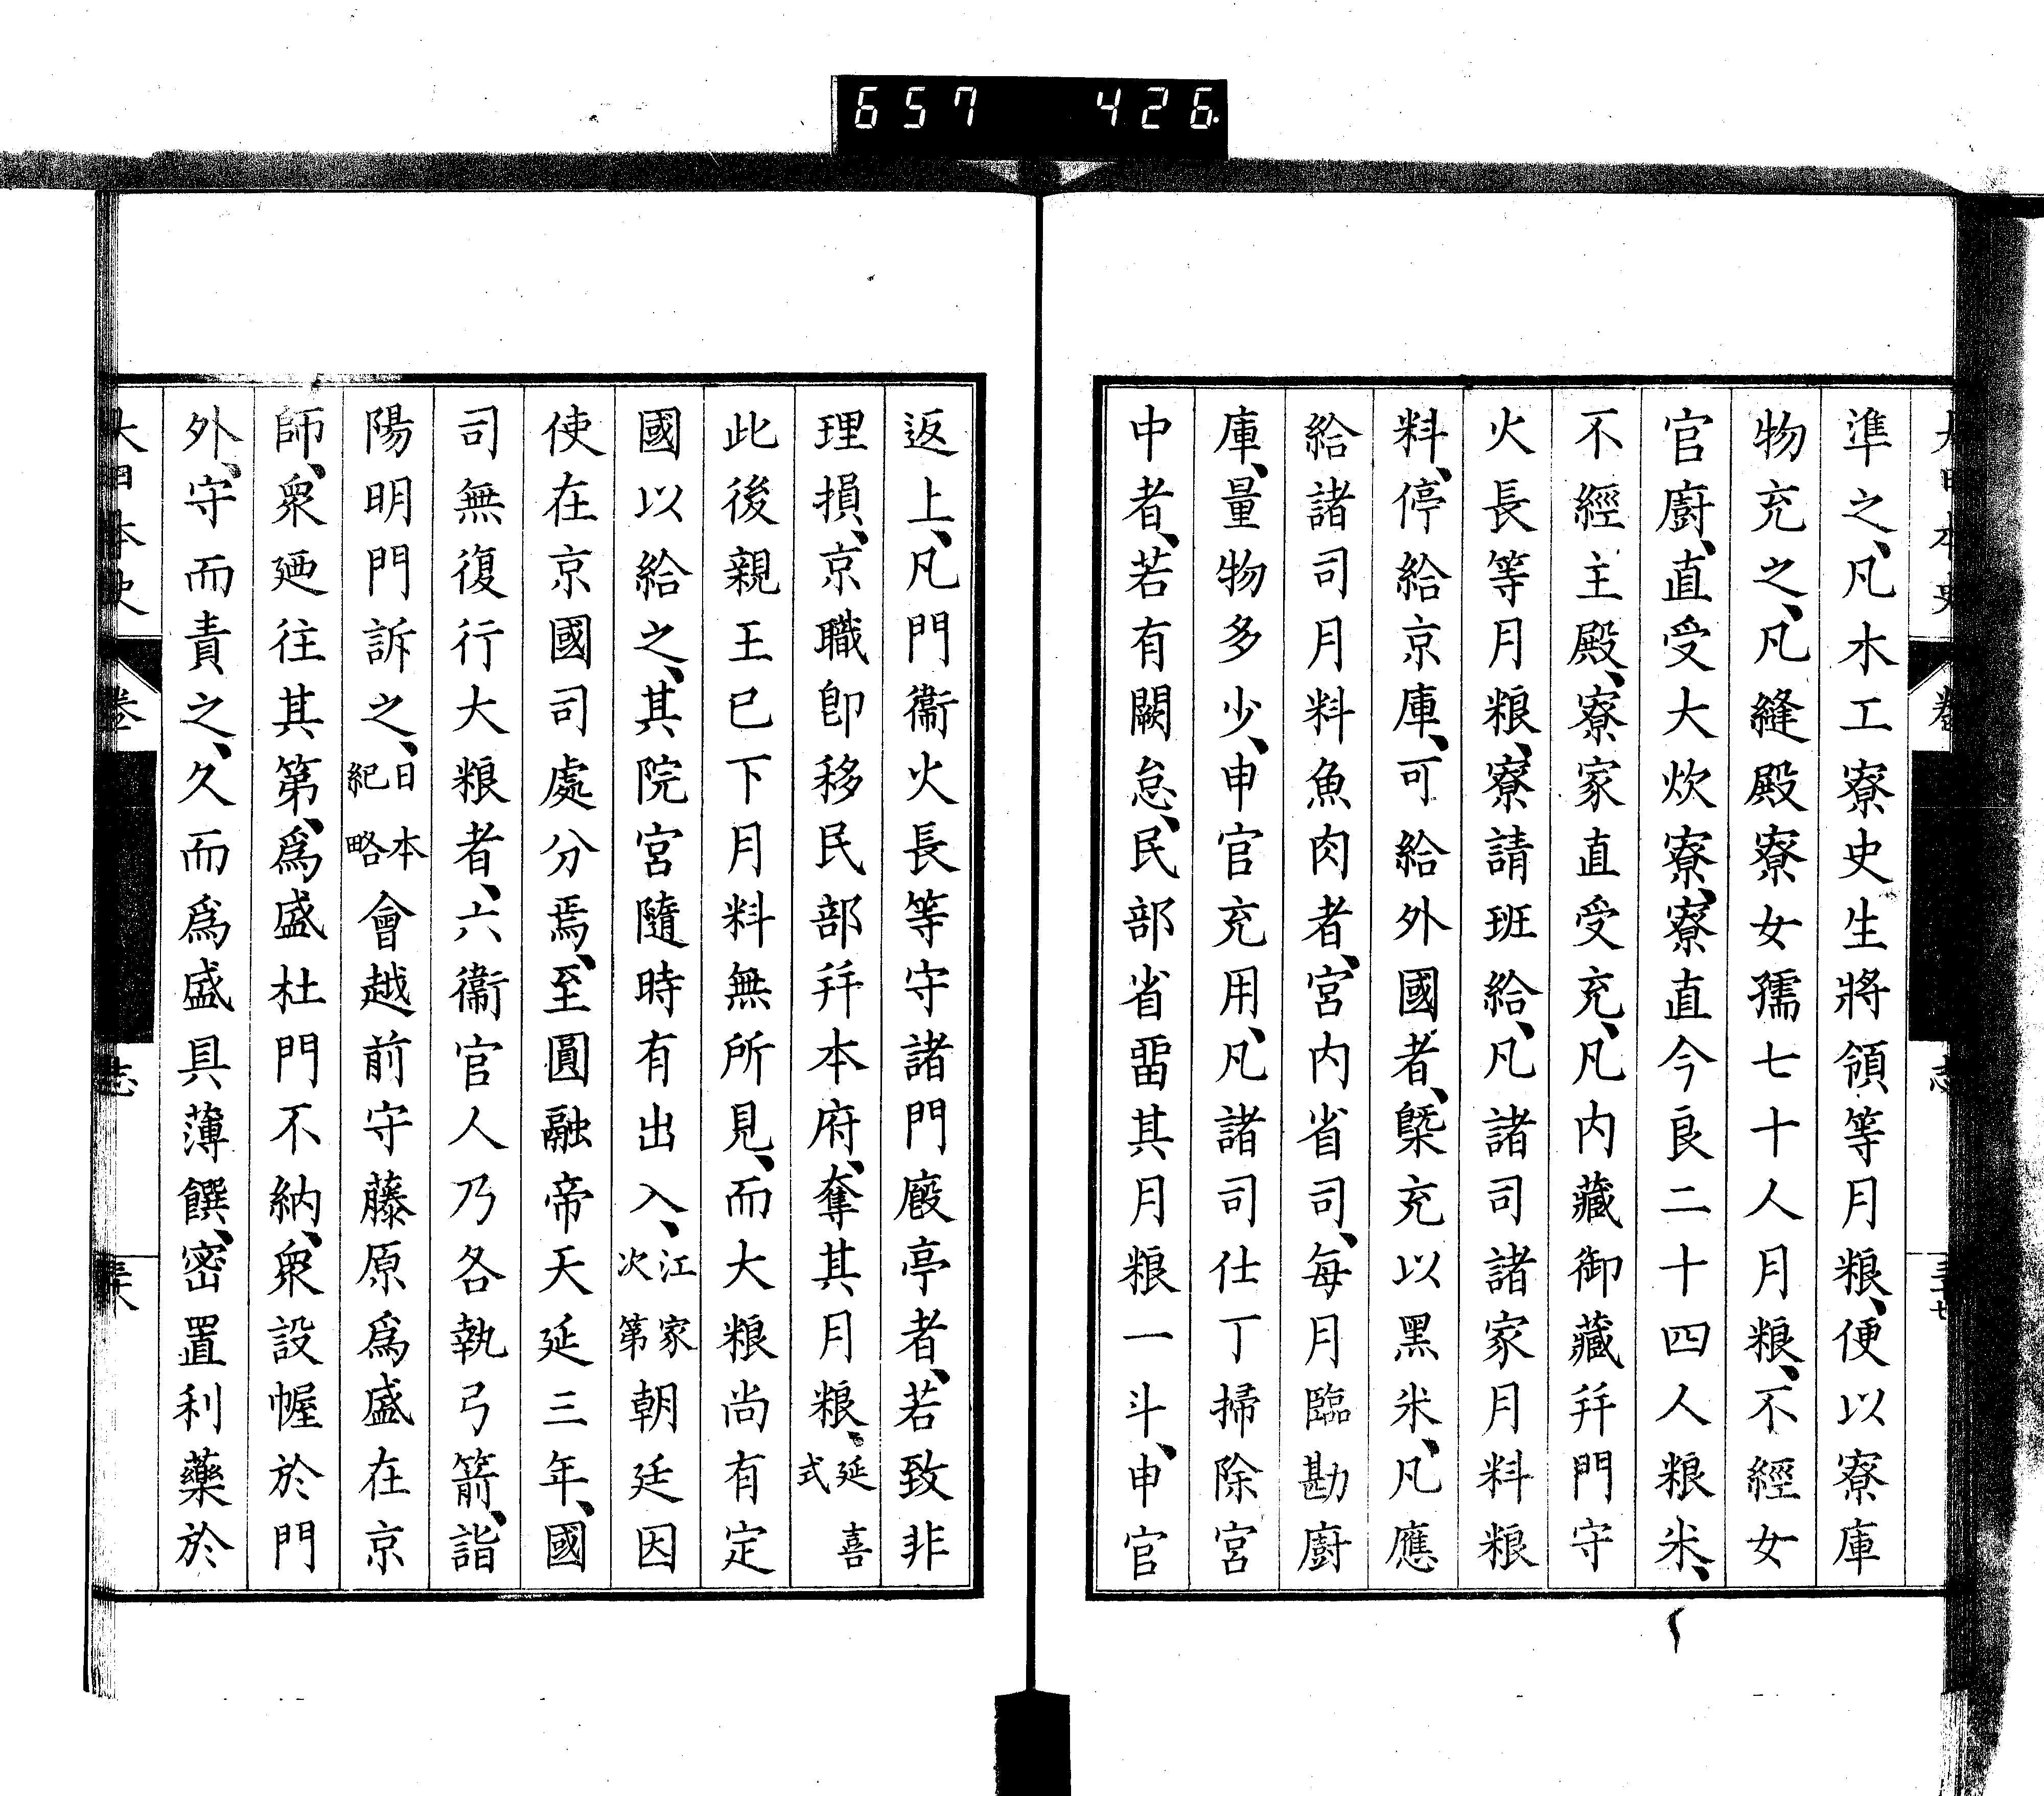 657 426
大日本史 卷 志 三十七
準之、凡木工寮史生將領等月粮、便以寮庫
物充之、凡縫殿寮女孺七十人月粮、不經女
官廚、直受大炊寮、寮直今良二十四人粮米、
不經主殿、寮家直受充、凡内藏御藏幷門守
火長等月粮、寮請班給、凡諸司諸家月料粮
料、停給京庫、可給外國者、槩充以黑米、凡應
給諸司月料魚肉者、宮内省司、每月臨勘廚
庫、量物多少、申官充用、凡諸司仕丁掃除宮
中者、若有闕怠、民部省畱其月粮一斗、申官
返上、凡門衞火長等守諸門殿亭者、若致非
理損、京職卽移民部幷本府、奪其月粮、延喜式
此後親王已下月料無所見、而大粮尚有定
國以給之、其院宮隨時有出入、江家次第朝廷因
使在京國司處分焉、至圓融帝天延三年、國
司無復行大粮者、六衞官人乃各執弓箭、詣
陽明門訴之、日本紀略會越前守藤原爲盛在京
師、衆廼往其第、爲盛杜門不納、衆設幄於門
外、守而責之、久而爲盛具薄饌、密置利藥於
大日本史 卷 志 三十八